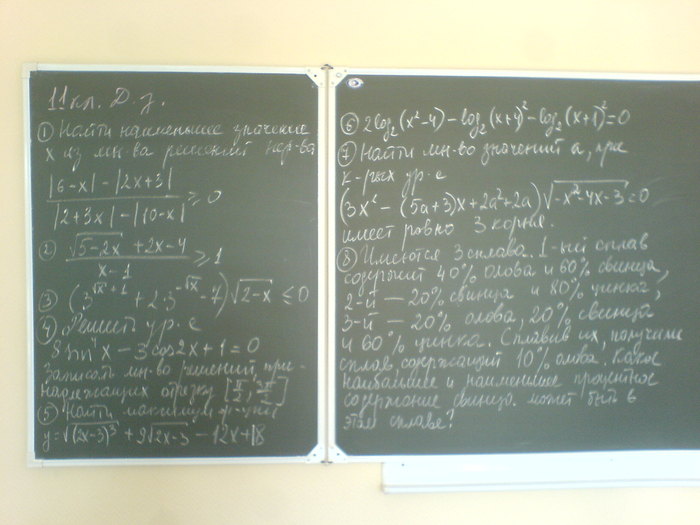 11 кл. Д.з.
① Найти наименьшее значение
x из мн-ва решений нер-ва
|6-x| - |2x+3|
|2+3x| - |10-x| ≥ 0
② √(5-2x) + 2x-4
x-1 ≥ 1
③ (3^(√x+1) + 2·3^(-√x) - 7)√(2-x) ≤ 0
④ Решить ур-е
8 sin⁴x - 3cos2x + 1 = 0
Записать мн-во решений, при-
надлежащих отрезку [π/2; 3π/2]
⑤ Найти максимум ф-ции
y = √(2x-3)³ + 9√(2x-3) - 12x + 18
⑥ 2log₂(x²-4) - log₂(x+4)² - log₂(x+1)² = 0
⑦ Найти мн-во значений a, при
к-рых ур-е
(3x² - (5a+3)x + 2a² + 2a)√(-x²-4x-3) = 0
имеет ровно 3 корня.
⑧ Имеются 3 сплава. 1-ый сплав
содержит 40% олова и 60% свинца,
2-й — 20% свинца и 80% цинка,
3-й — 20% олова, 20% свинца
и 60% цинка. Сплавив их, получили
сплав, содержащий 10% олова. Какое
наибольшее и наименьшее процентное
содержание свинца может быть в
этом сплаве?